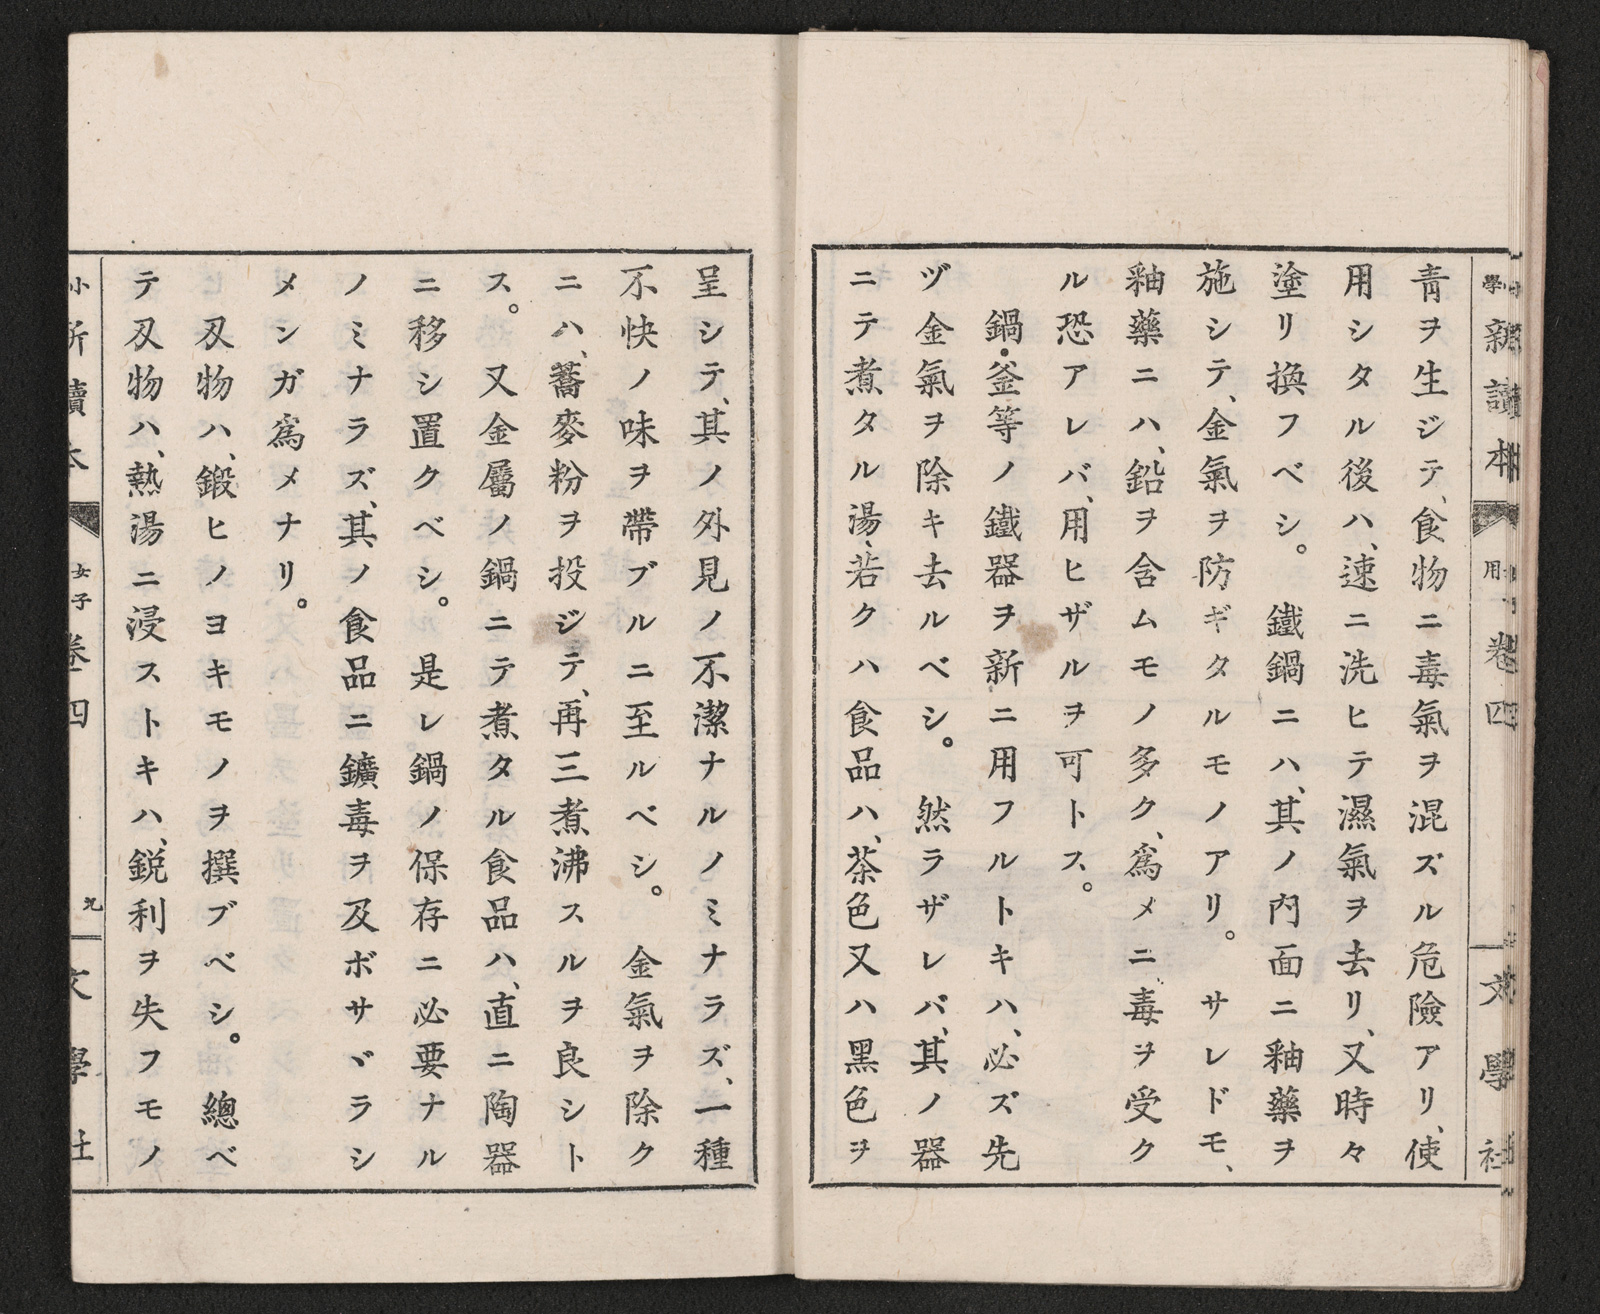 青ヲ生ジテ、食物ニ毒氣ヲ混ズル危險アリ、使
用シタル後ハ、速ニ洗ヒテ濕氣ヲ去リ、又時々
塗リ換フベシ。鐵鍋ニハ、其ノ內面ニ釉藥ヲ
施シテ、金氣ヲ防ギタルモノアリ。サレドモ、
釉藥ニハ、鉛ヲ含ムモノ多ク、爲メニ毒ヲ受ク
ル恐アレバ、用ヒザルヲ可トス。
鍋・釜等ノ鐵器ヲ新ニ用フルトキハ、必ズ先
ヅ金氣ヲ除キ去ルベシ。然ラザレバ、其ノ器
ニテ煮タル湯、若クハ食品ハ、茶色又ハ黑色ヲ
呈シテ、其ノ外見ノ不潔ナルノミナラズ、一種
不快ノ味ヲ帶ブルニ至ルベシ。金氣ヲ除ク
ニハ、蕎麥粉ヲ投ジテ、再三煮沸スルヲ良シト
ス。又金屬ノ鍋ニテ煮タル食品ハ、直ニ陶器
ニ移シ置クベシ。是レ鍋ノ保存ニ必要ナル
ノミナラズ、其ノ食品ニ鑛毒ヲ及ボサヾラシ
メンガ爲メナリ。
刄物ハ、鍛ヒノヨキモノヲ撰ブベシ。總ベ
テ刄物ハ、熱湯ニ浸ストキハ、銳利ヲ失フモノ
小 新讀本 女子 卷四 九 文學社